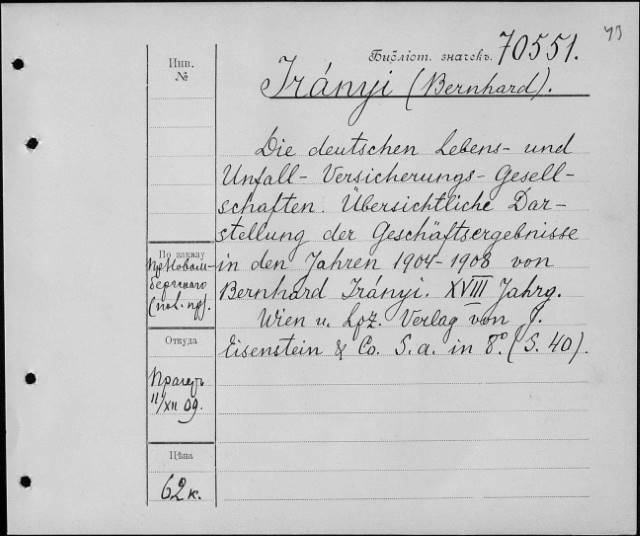 43
Библіот. значекъ. 70551.
Инв.
№
Irányi (Bernhard).
Die deutschen Lebens- und
Unfall-Versicherungs-Gesell-
schaften. Übersichtliche Dar-
stellung der Geschäftsergebnisse
По заказу
in den Jahren 1904-1908 von
Bernhard Irányi. XVIII Jahrg.
Wien u. Lpz. Verlag von J.
Откуда
Eisenstein & Co. S. a. in 8°. (S. 40).
Прагеръ
11/XII 09.
Цѣна
62 к.